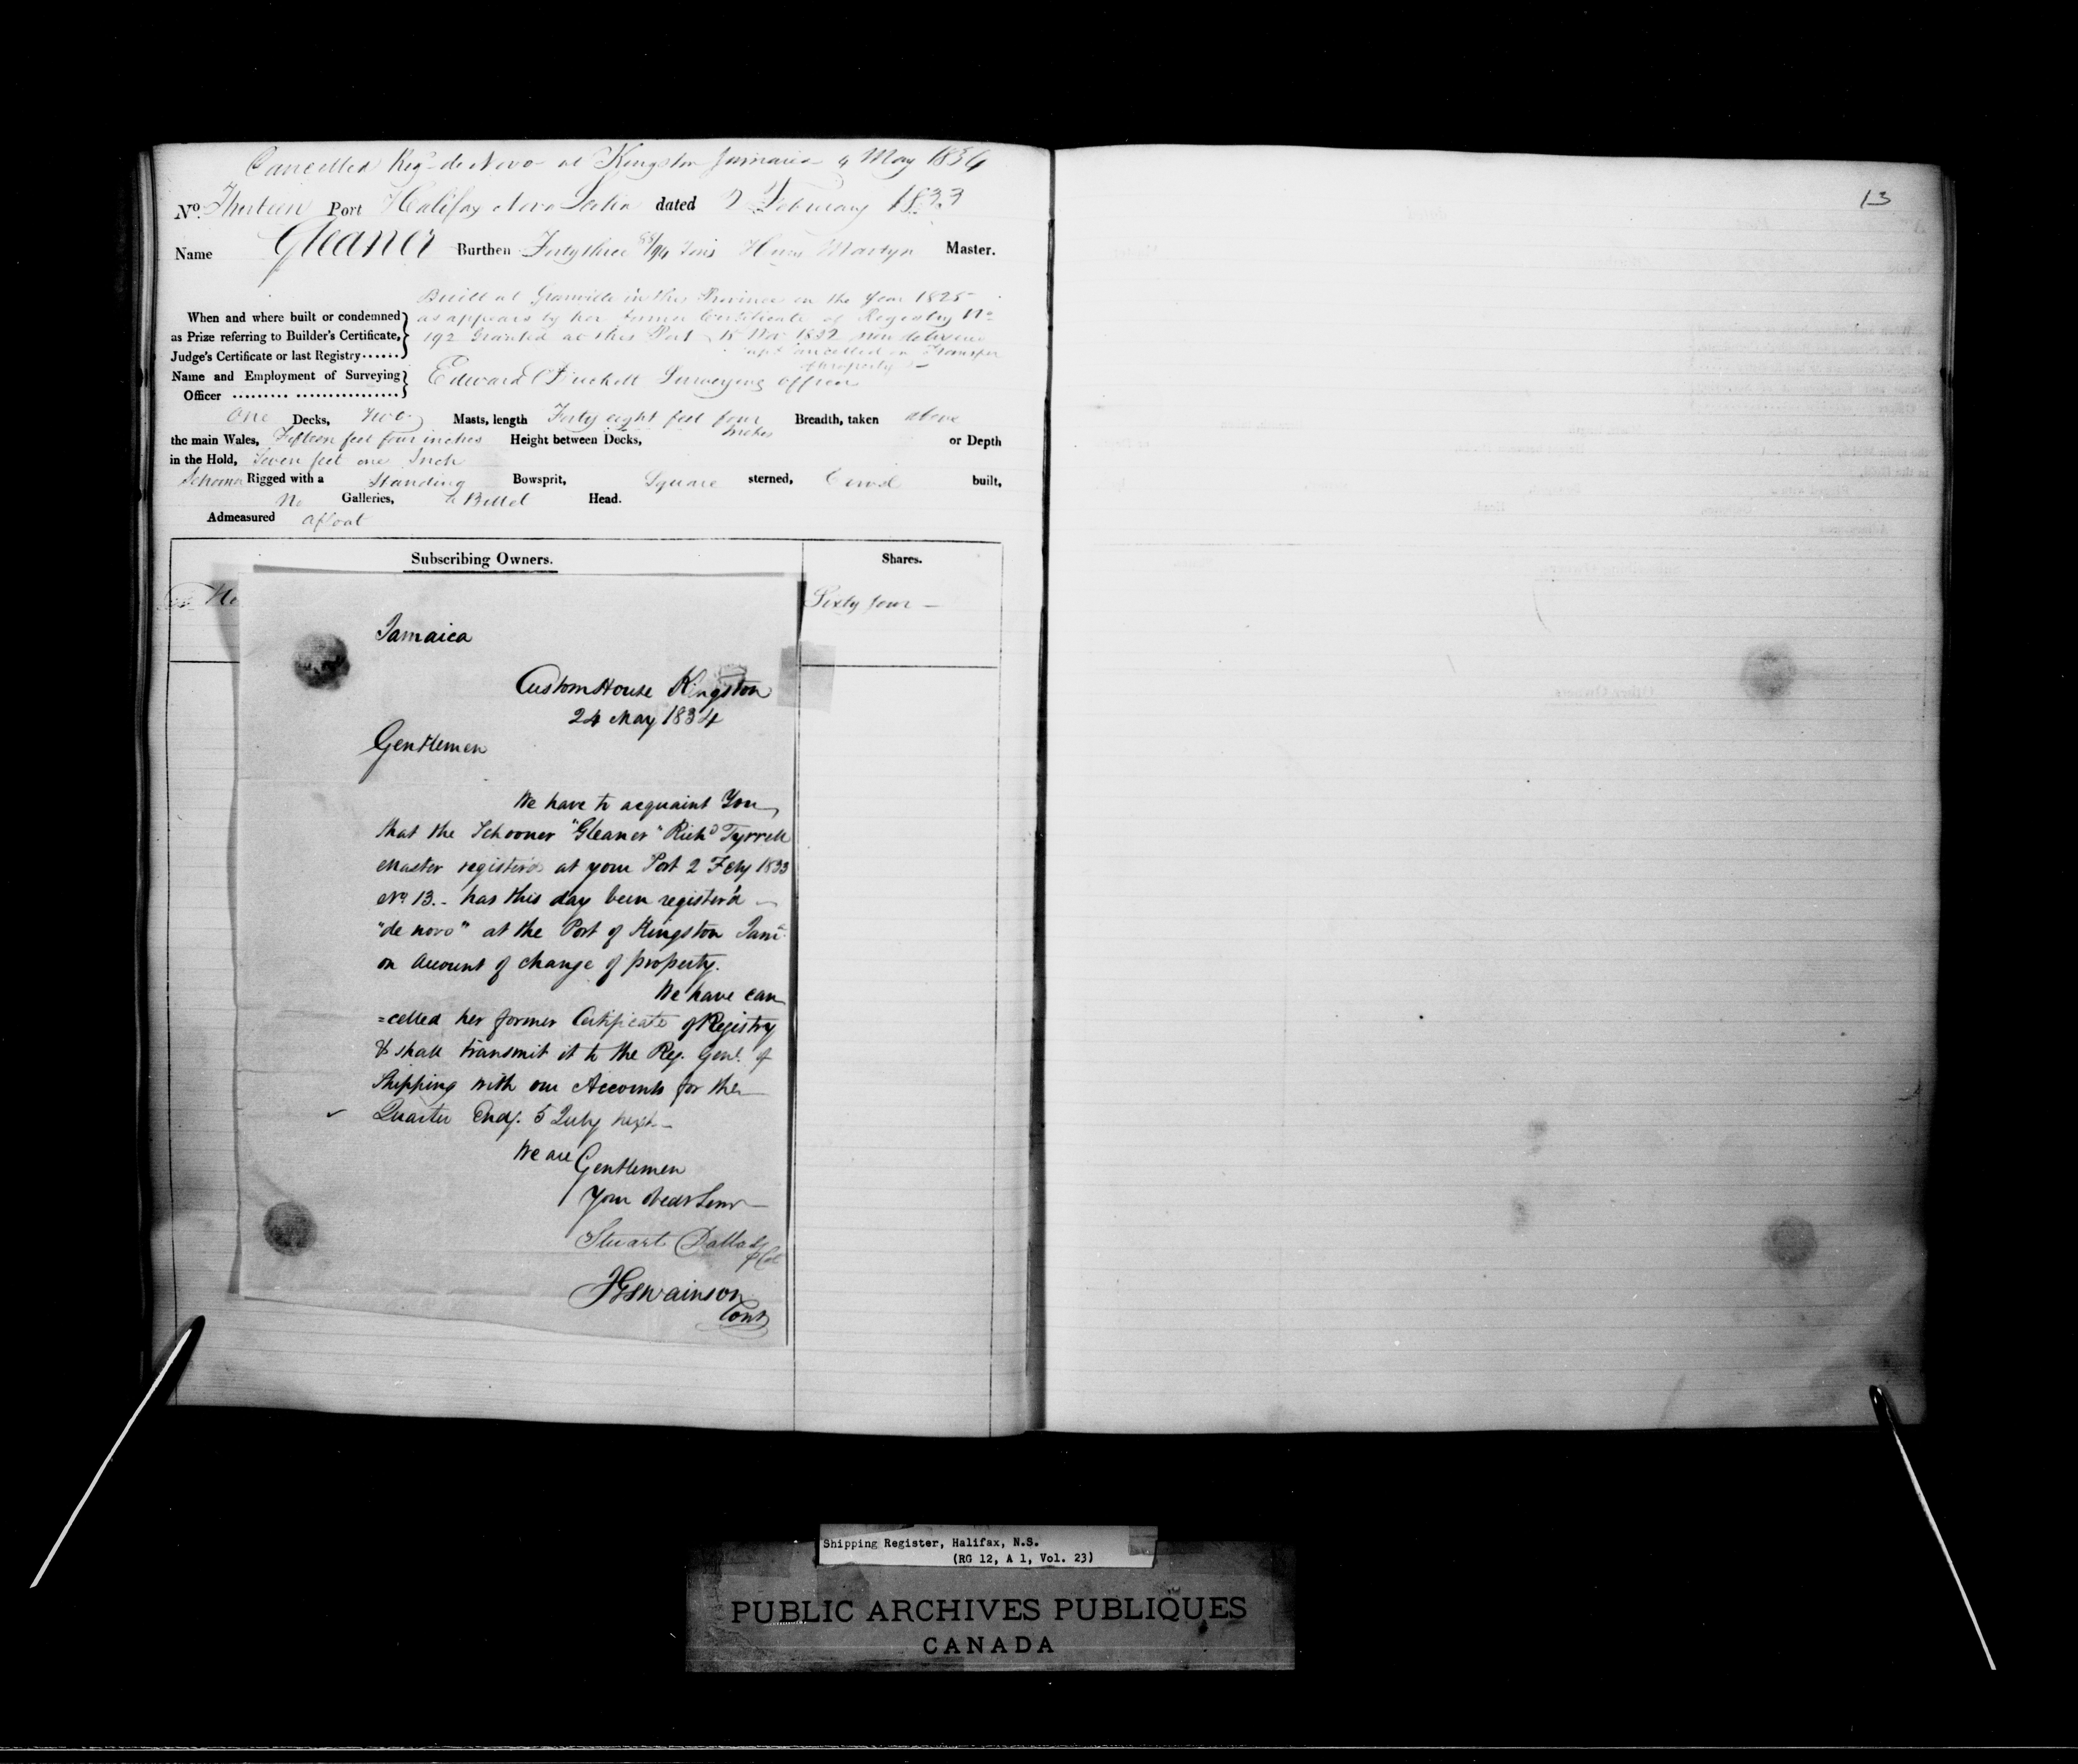 Cancelled Reg. de Novo at Kingston Jamaica 4 May 1834
No. Thirteen Port Halifax Nova Scotia dated 2 February 1833
Name Gleaner Burthen Forty three 88/94 Tons Martyn Master.
Built at Granville in the Province in the Year 1825
When and where built or condemned as appears by her former Certificate of Registry No
as Prize referring to Builder's Certificate, 192 Granted at this Port 15 Nov 1832 now delivered
Judge's Certificate or last Registry...... up & Cancelled on Transfer
of Property
Name and Employment of Surveying Edward Duckett Surveying Officer
Officer
One Decks, Two Masts, length Forty eight feet four Breadth, taken above
the main Wales, Fifteen feet four inches Height between Decks, inches or Depth
in the Hold, Seven feet one Inch
Schooner Rigged with a Standing Bowsprit, Square sterned, Carvel built,
No Galleries, a Billet Head.
Admeasured afloat
Subscribing Owners. Shares.
Sixty four —
Jamaica
Custom House Kingston
24 May 1834
Gentlemen
We have to acquaint You
that the Schooner "Gleaner" Richd Tyrrell
Master register'd at your Port 2 Feby 1833
No. 13. - has this day been register'd
"de novo" at the Port of Kingston Jama
on Account of change of property.
We have can
=celled her former Certificate of Registry
& shall transmit it to the Reg. Genl. of
Shipping with our Accounts for the
Quarter Endg. 5 July next
We are Gentlemen
Your Obedt Servts
Stuart Dallas
J G Swainson
Cont
13
Shipping Register, Halifax, N.S.
(RG 12, A 1, Vol. 23)
PUBLIC ARCHIVES PUBLIQUES
CANADA